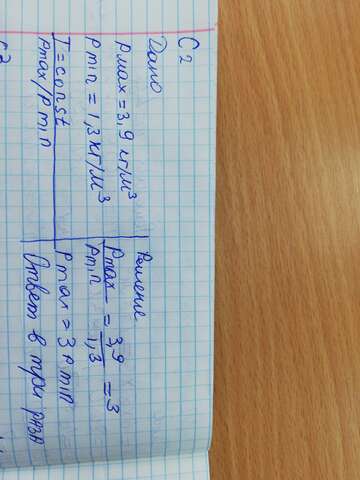 С 2
Дано
ρmax = 3,9 кг/м³
ρmin = 1,3 кг/м³
T = const
ρmax/ρmin
Решение
ρmax/ρmin = 3,9/1,3 = 3
ρmax = 3 ρmin
Ответ в три раза